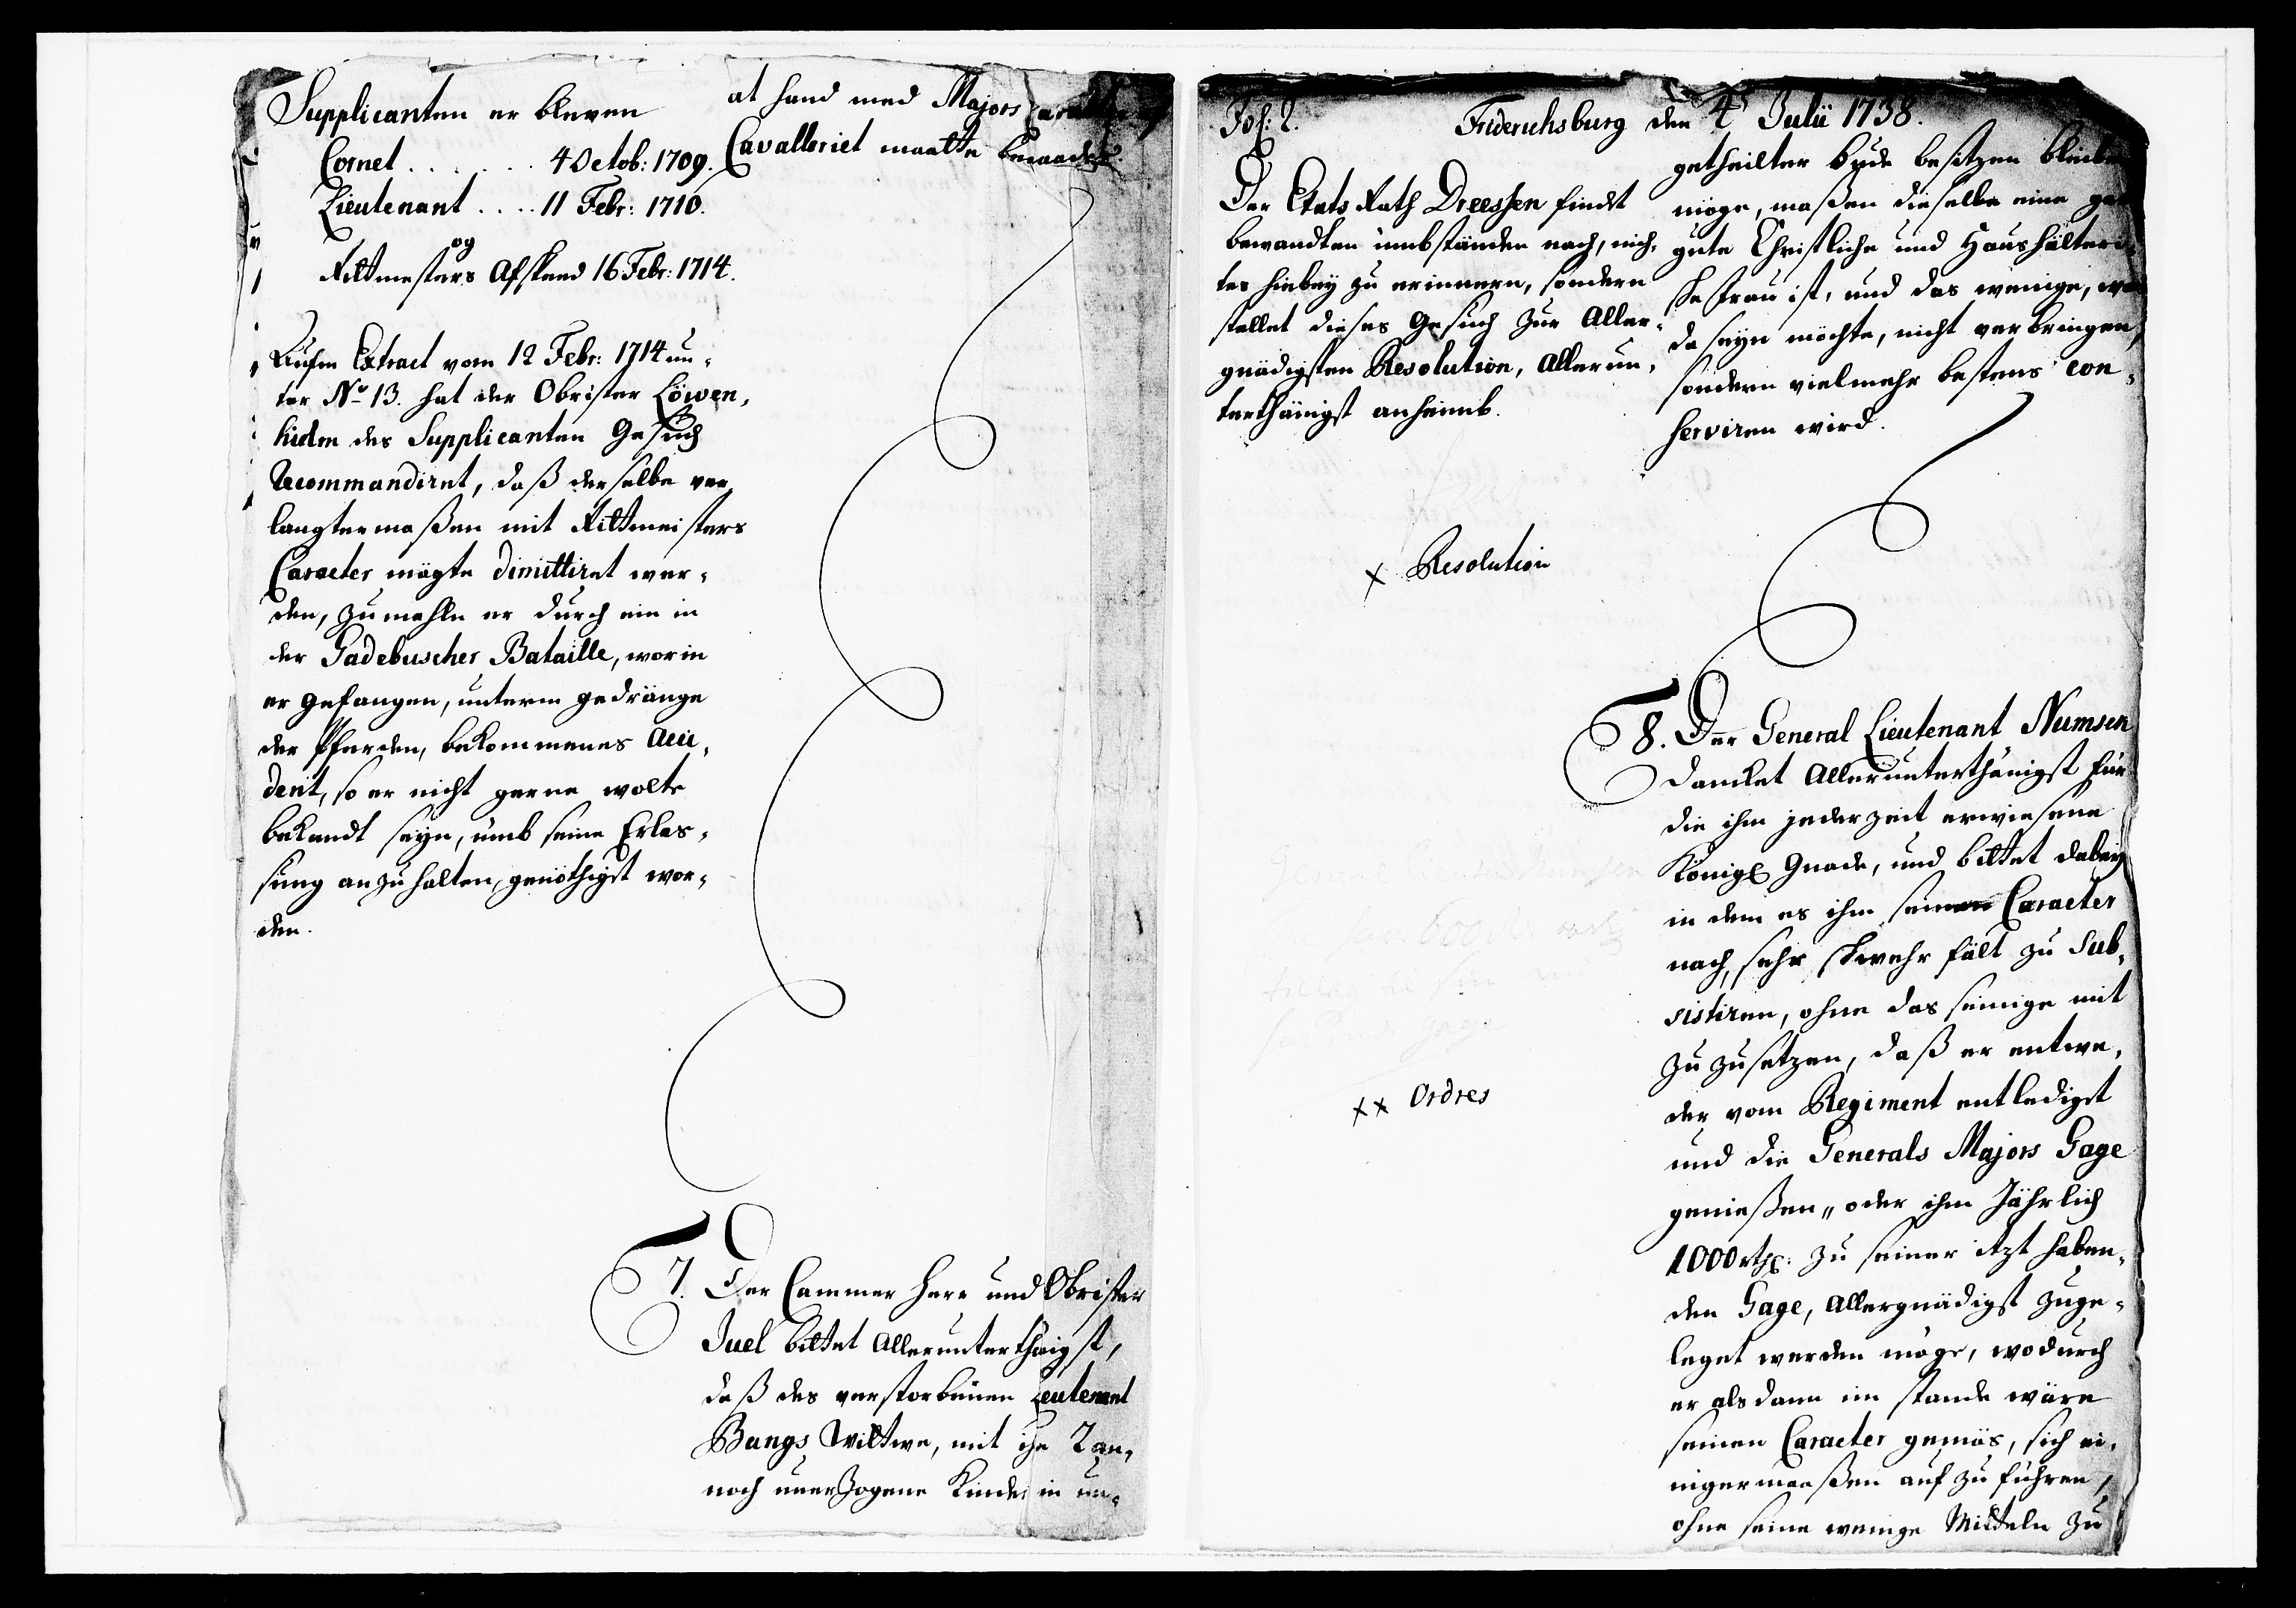 Supplicanten er bleven
Cornet . . . . . . . 4 Octob: 1709.
Lieutenant . . . . 11 Febr: 1710.
og
Ritmesters Afskeed 16 Febr: 1714.
Aufm Extract vom 12 Febr: 1714 un-
ter No 13. hat der Obrister Löwen-
hielm des Supplicanten Gesuch
Recommandiret, daß derselbe ver-
langtermaßen mit Rittmeisters
Caracter mögte dimittiret wer-
den, zumahln er durch ein in
der Gadebuscher Bataille, worin
er gefangen, unterm gedränge
der Pferden, bekommenes Acci-
dent, so er nicht gerne wolte
bekandt seyn, umb seine Erlas-
sung anzuhalten, genöthigst wor-
den.
at hand med Majors Caracter af
Cavalleriet maatte benaades.
7. Der Cammer Herr und Obrister
Juel bittet Allerunterthänigst,
daß des verstorbenen Leutenant
Bangs Wittwe, mit ihr 2 an-
noch unerzogene Kinder in un-
Fol: 2.
Friderichsburg den 4t Julii 1738.
Der Etats Rath Dreessen findet
bewandten umbständen nach, nich-
tes hiebey zu erinnern, sondern
stellet dieses Gesuch zur Aller-
gnädigsten Resolution, Allerun-
terthänigst anheimb.
getheilter Bude besitzen bleiben
möge, maßen dieselbe eine gar
gute Christliche und Haushälteri-
sche Frau ist, und das wenige, was
da seyn möchte, nicht verbringen,
sondern vielmehr bestens con-
serviren wird.
x Resolution
8. Der General Lieutenant Numsen
dancket Allerunterthänigst für
die ihm jederzeit erwiesene
Königl Gnade, und bittet dabey
in dem es ihm seinen Caracter
nach, sehr schwehr fält zu sub-
sistiren, ohne das seinige mit
zuzusetzen, daß er entwe-
der vom Regiment entledigt
und die Generals Majors Gage
genießen, oder ihm Jährlich
1000 rthl: zu seiner itzt haben-
den Gage, Allergnädigst zuge-
leget werden möge, wodurch
er alsdann im stande wäre
seinen Caracter gemäs, sich ei-
nigermaaßen auf zu führen,
ohne seine wenige Mitteln zu
xx Ordres